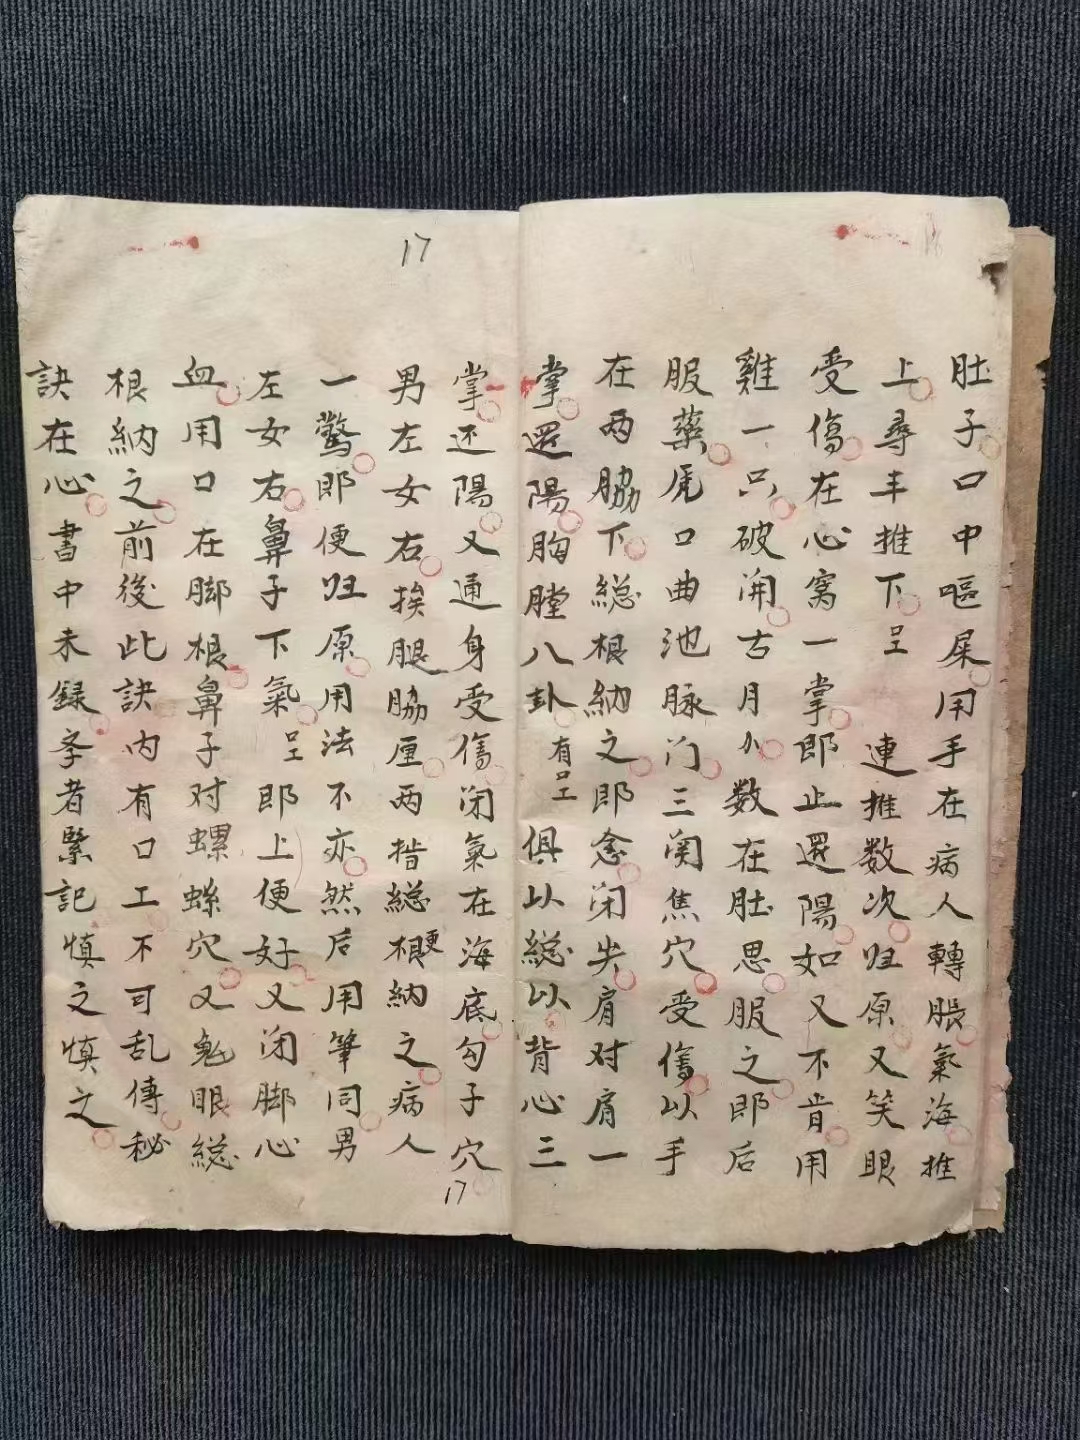 肚子口中嘔屎用手在病人轉脹氣海推
上尋丰推下呈連推数次归原又笑眼
受傷在心窩一掌即止還陽如又不肯用
雞一只破开古月小数在肚思服之即后
服藥虎口曲池脉门三関焦穴受傷以手
在两脇下総根納之即愈闭失肩对肩一
掌還陽胸膛八卦有口工俱以総以背心三
17
掌还陽又通身受傷闭氣在海底勾子穴
男左女右挨腿脇厘两揩総根更納之病人
一驚即便归原用法不亦然后用筆同男
左女右鼻子下氣呈即上便好又闭脚心
血用口在脚根鼻子对螺絲穴又鬼眼総
根納之前後此訣内有口工不可乱傳秘
訣在心書中未録孝者緊記慎之慎之
17